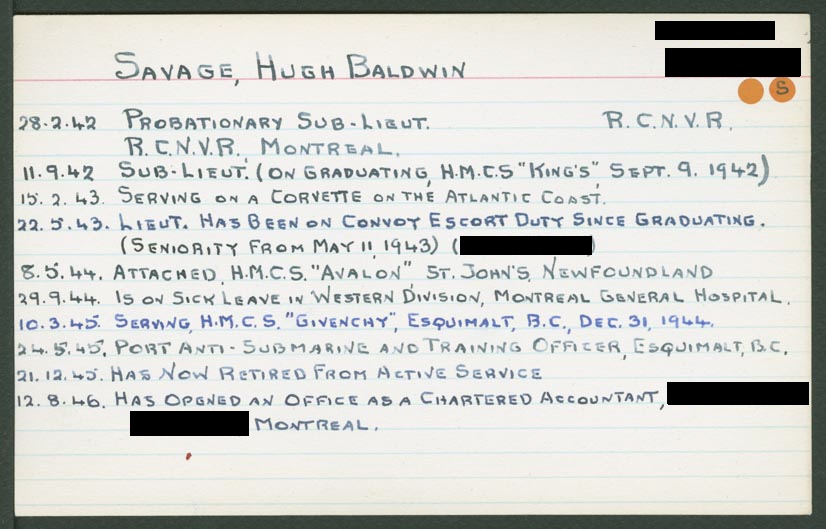 SAVAGE, HUGH BALDWIN
S
28.2.42 PROBATIONARY SUB-LIEUT. R.C.N.V.R.
R.C.N.V.R., MONTREAL.
11.9.42 SUB-LIEUT. (ON GRADUATING, H.M.C.S "KING'S", SEPT. 9. 1942)
15.2.43. SERVING ON A CORVETTE ON THE ATLANTIC COAST.
22.5.43. LIEUT. HAS BEEN ON CONVOY ESCORT DUTY SINCE GRADUATING.
(SENIORITY FROM MAY 11, 1943) ( )
8.5.44. ATTACHED, H.M.C.S. "AVALON", ST. JOHN'S, NEWFOUNDLAND
29.9.44. IS ON SICK LEAVE IN WESTERN DIVISION, MONTREAL GENERAL HOSPITAL.
10.3.45. SERVING, H.M.C.S. "GIVENCHY", ESQUIMALT, B.C., DEC. 31, 1944.
24.5.45. PORT ANTI-SUBMARINE AND TRAINING OFFICER, ESQUIMALT, B.C.
21.12.45. HAS NOW RETIRED FROM ACTIVE SERVICE
12.8.46. HAS OPENED AN OFFICE AS A CHARTERED ACCOUNTANT,
MONTREAL.